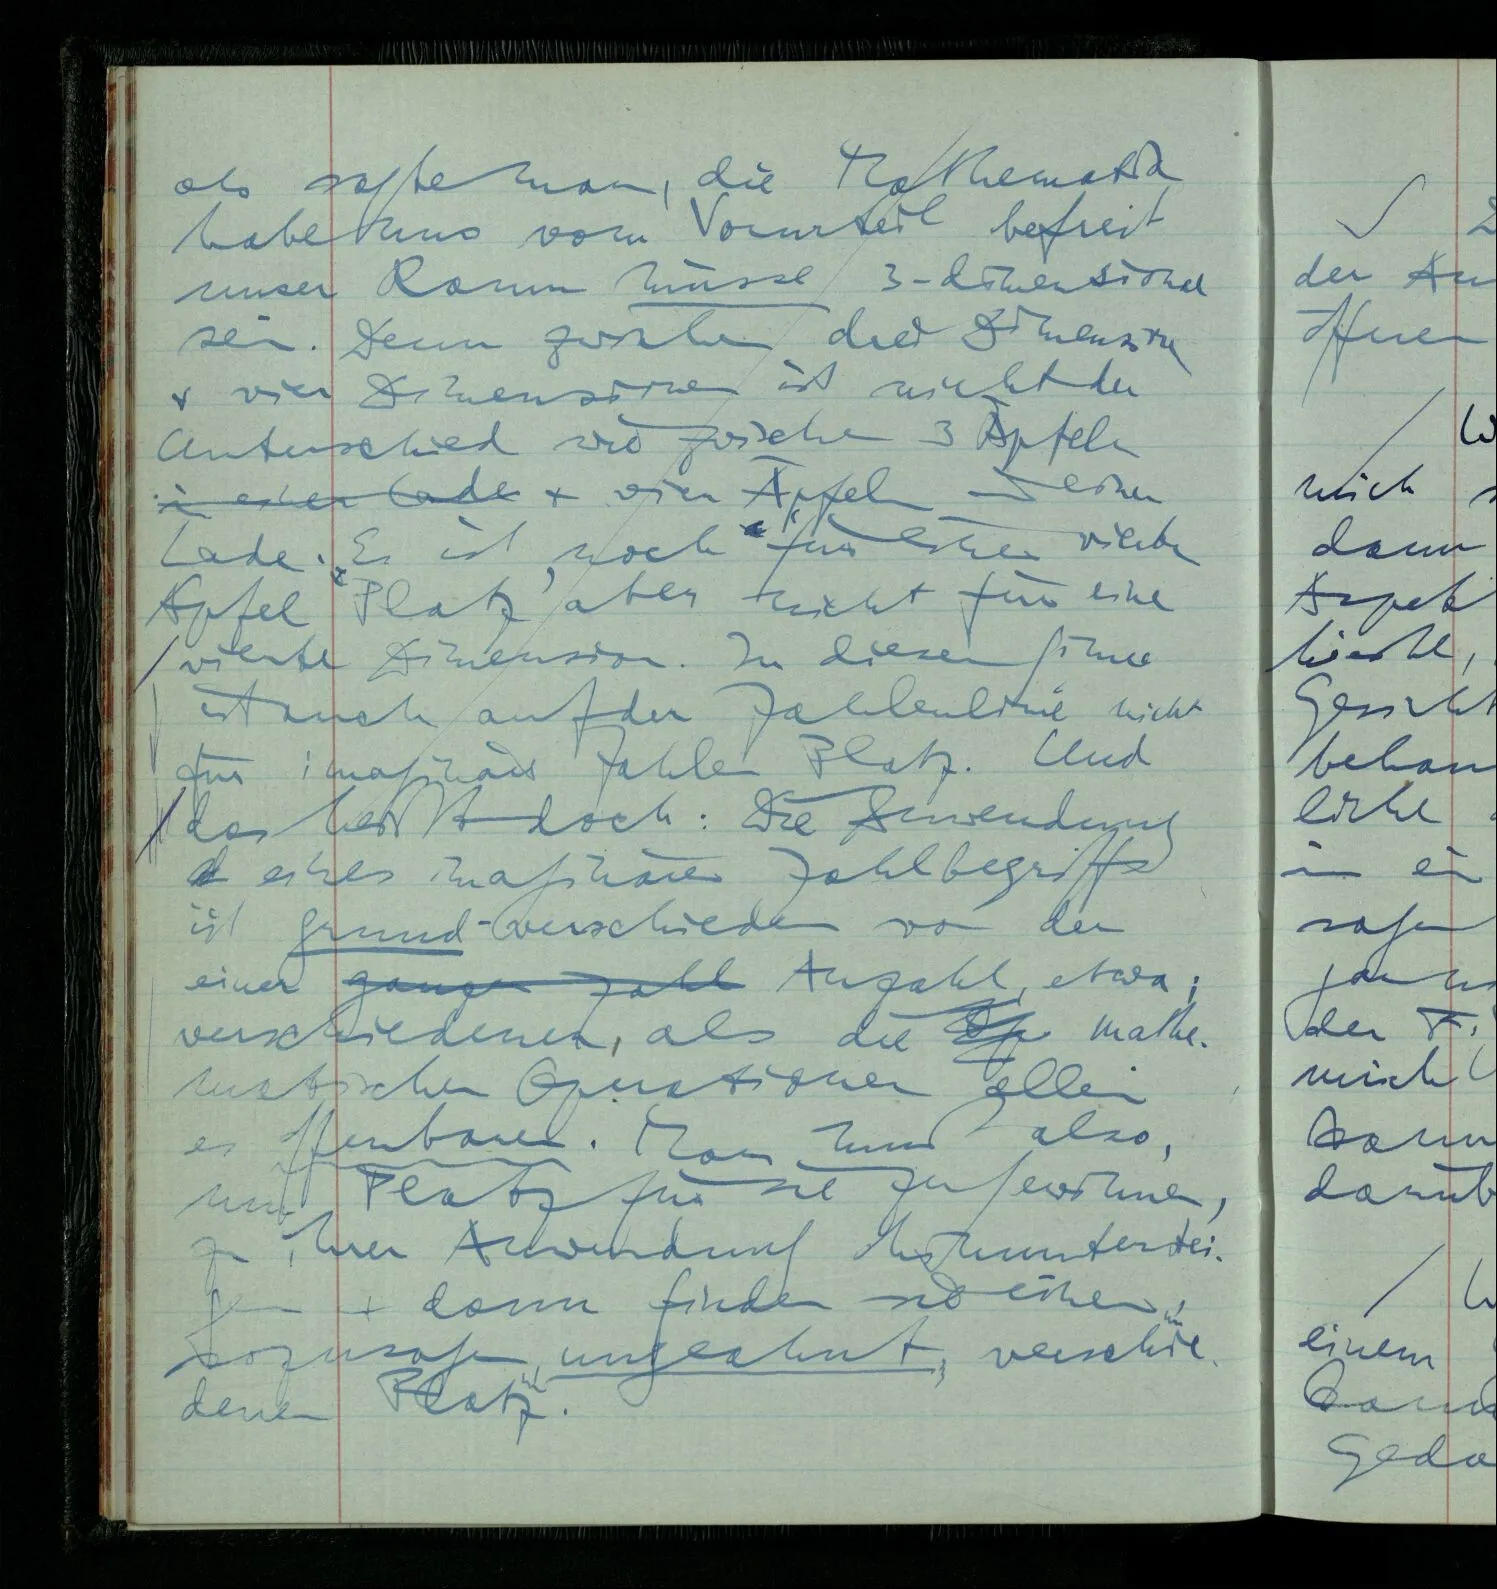 als sagte man, die Mathematik
habe uns vom Vorurteil befreit
unser Raum müsse 3-dimensional
sein. Denn zwischen drei Dimensionen
& vier Dimensionen ist nicht der
Unterschied wie zwischen 3 Äpfeln
in einer Lade & vier Äpfeln in einer
Lade. Es ist noch "für einen vierten
Apfel Platz" aber nicht für eine
vierte Dimension. In diesem Sinne
ist auch auf der Zahlenlinie nicht
für imaginäre Zahlen Platz. Und
das heißt doch: Die Anwendung
eines imaginären Zahlbegriffs
ist grund-verschieden von der
einer ganzen Zahl Anzahl, etwa;
verschiedener, als die mathe-
matischen Operationen allein
es offenbaren. Man muß also,
um Platz für sie zu gewinnen,
zu ihrer Anwendung hinunterstei-
gen & dann finden sie einen,
sozusagen, ungeahnt, verschie-
denen Platz".
der An
öffnen
mich
dann
Aspek
Gesicht
behan
in ein
sagen
der
einem
Geda